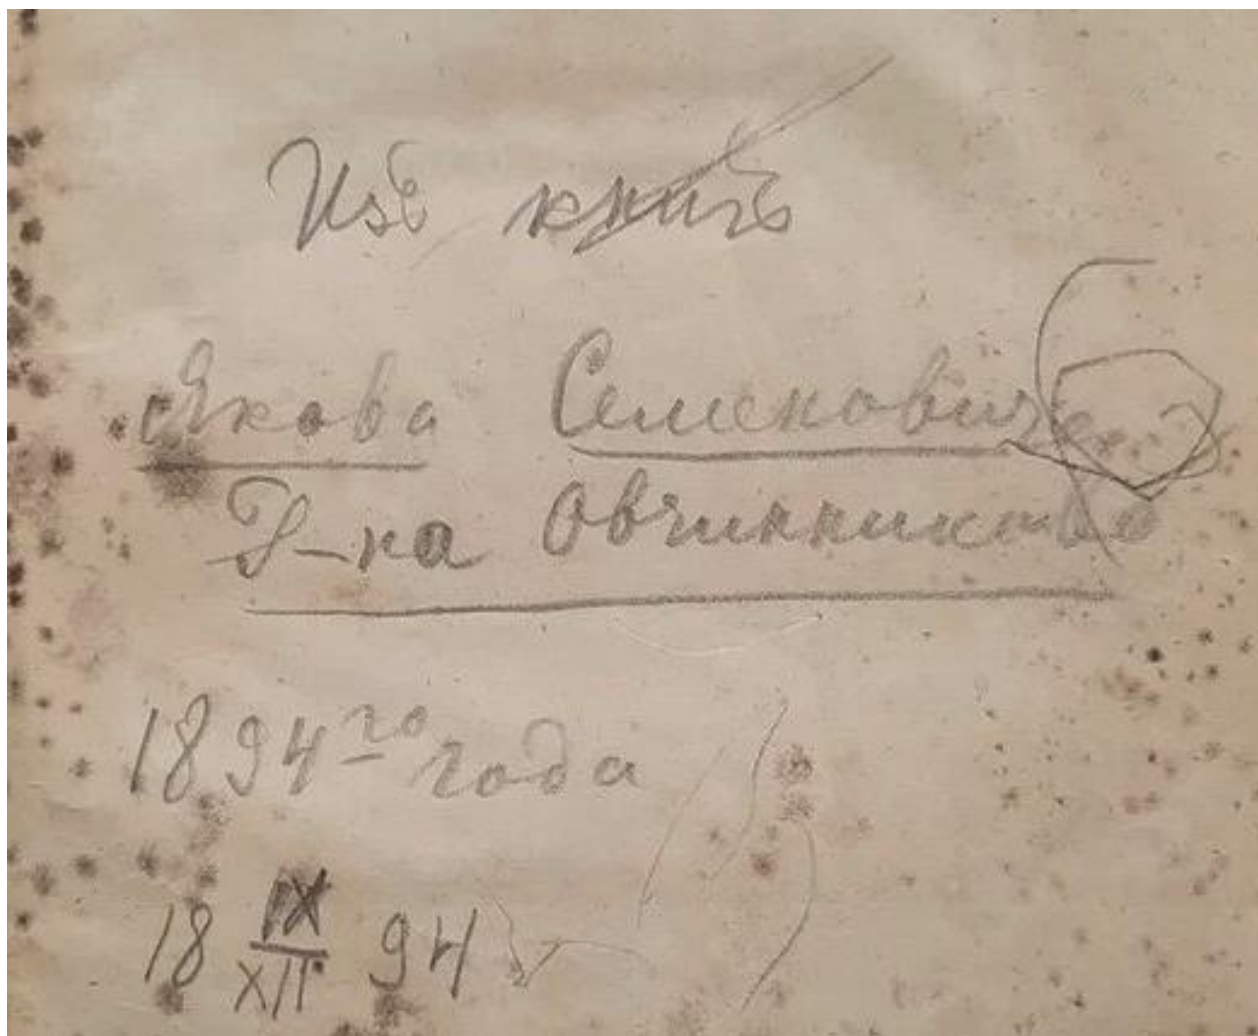 Изъ книгъ
Якова Семеновича
Овчинникова
1894го года
18 IX/XII 94